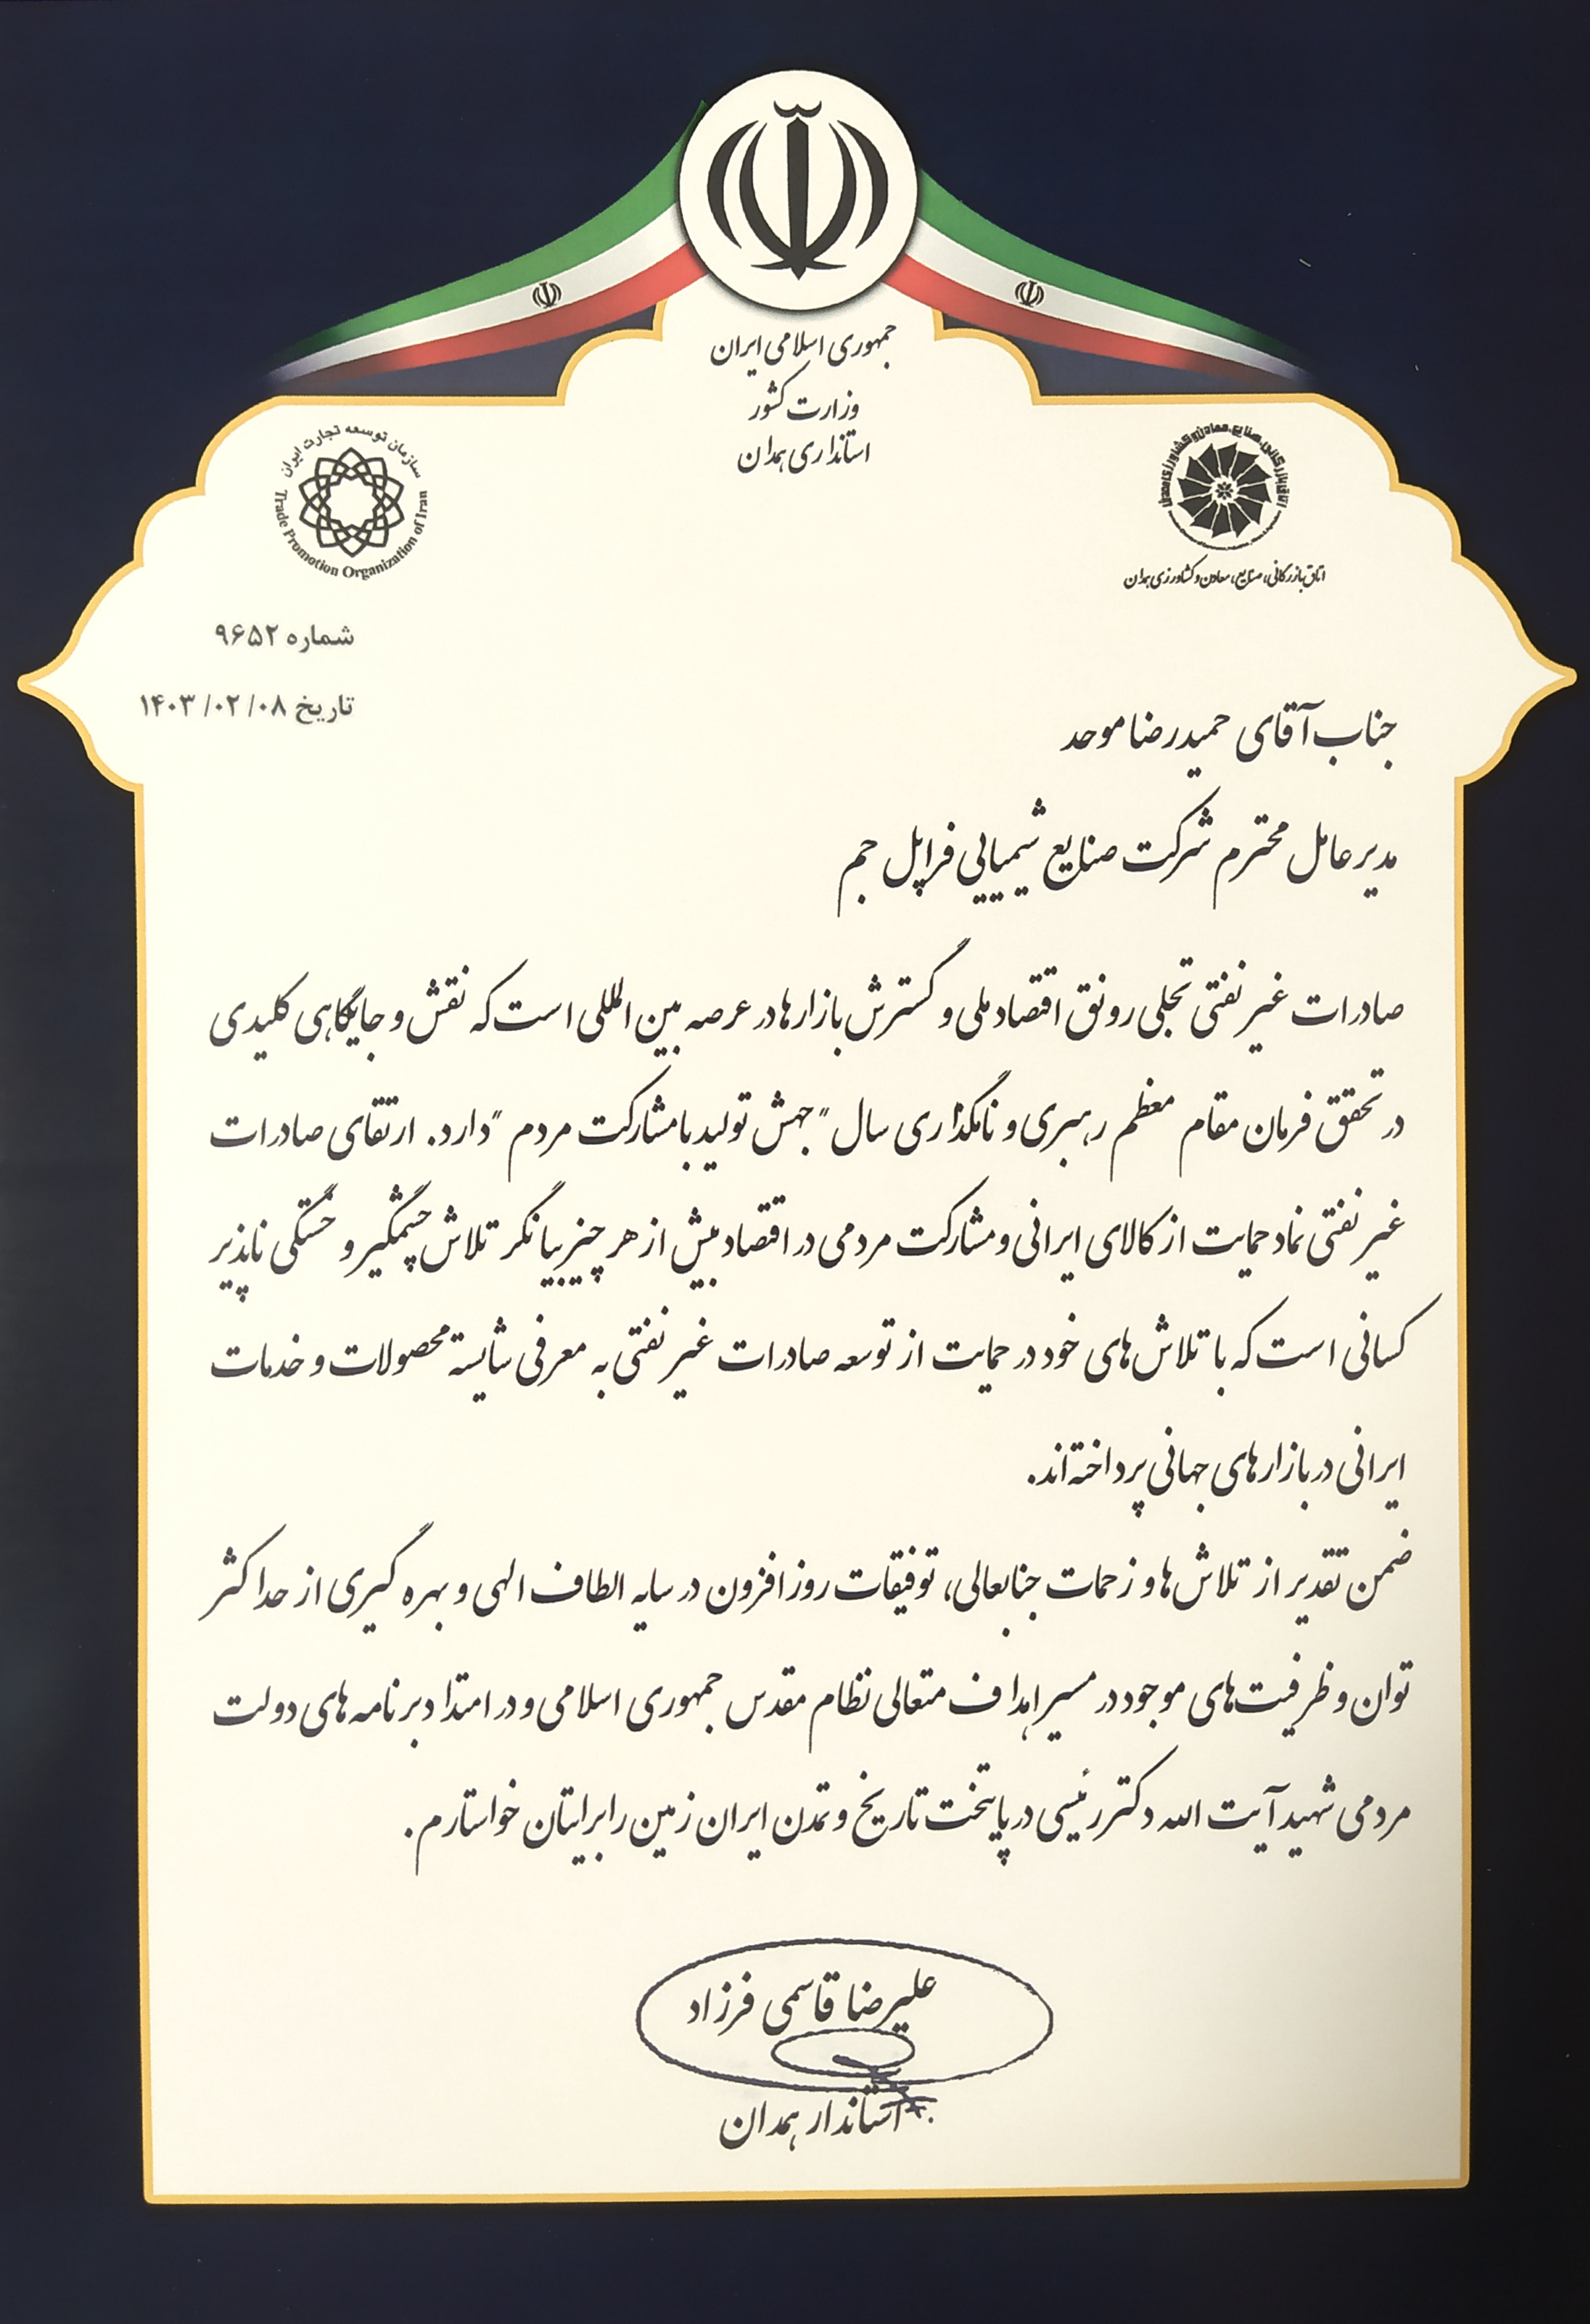 جمهوری اسلامی ایران
وزارت کشور
استانداری همدان
سازمان توسعه تجارت ایران
Trade Promotion Organization of Iran
اتاق بازرگانی، صنایع، معادن و کشاورزی همدان
اتاق بازرگانی، صنایع، معادن و کشاورزی همدان
شماره ۹۶۵۲
تاریخ ۱۴۰۳/۰۲/۰۸
جناب آقای حمیدرضا موحد
مدیرعامل محترم شرکت صنایع شیمیایی فراپل جم
صادرات غیرنفتی تجلی رونق اقتصاد ملی و گسترش بازارها در عرصه بین المللی است که نقش و جایگاهی کلیدی
در تحقق فرمان مقام معظم رهبری و نامگذاری سال "جهش تولید با مشارکت مردم" دارد. ارتقای صادرات
غیرنفتی نماد حمایت از کالای ایرانی و مشارکت مردمی در اقتصاد بیش از هر چیز بیانگر تلاش چشمگیر و خستگی ناپذیر
کسانی است که با تلاش‌های خود در حمایت از توسعه صادرات غیرنفتی به معرفی شایسته محصولات و خدمات
ایرانی در بازارهای جهانی پرداخته‌اند.
ضمن تقدیر از تلاش‌ها و زحمات جنابعالی، توفیقات روزافزون در سایه الطاف الهی و بهره گیری از حداکثر
توان و ظرفیت‌های موجود در مسیر اهداف متعالی نظام مقدس جمهوری اسلامی و در امتداد برنامه های دولت
مردمی شهید آیت الله دکتر رئیسی در پایتخت تاریخ و تمدن ایران زمین را برایتان خواستارم.
علیرضا قاسمی فرزاد
استاندار همدان